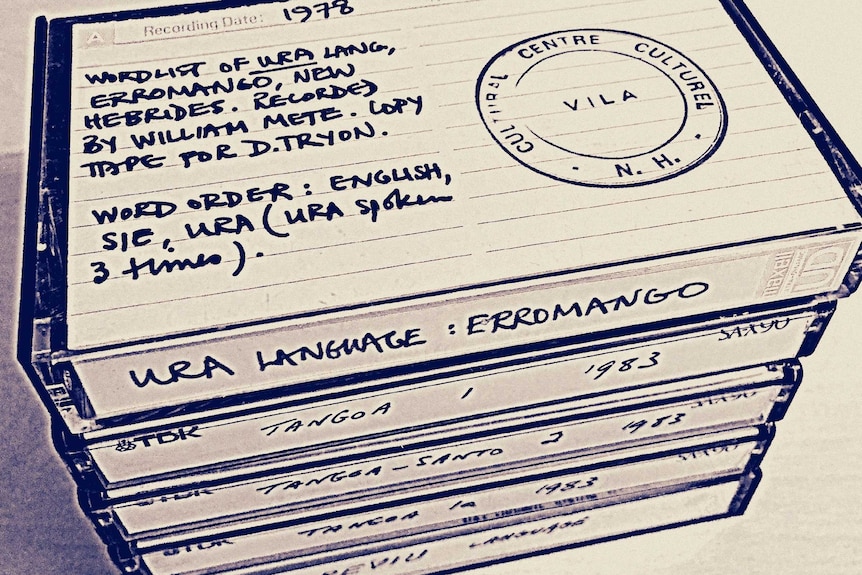 A Recording Date: 1978
WORDLIST OF URA LANG,
ERROMANGO, NEW
HEBRIDES. RECORDED
BY WILLIAM METE. COPY
TAPE FOR D. TRYON.
WORD ORDER: ENGLISH,
SIE, URA (URA spoken
3 times).
CULTURAL CENTRE CULTUREL
VILA
N. H.
URA LANGUAGE : ERROMANGO
maxell UD
TDK TANGOA 1 1983 SAX90
TDK TANGOA-SANTO 2 1983 SAX90
TDK TANGOA 1a 1983 SAX90
LANGUAGE